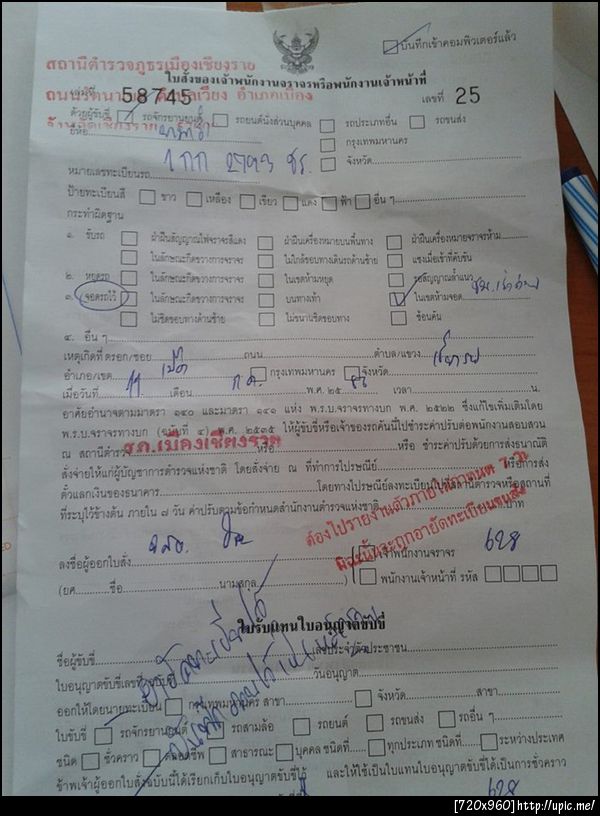 บันทึกเข้าคอมพิวเตอร์แล้ว
สถานีตำรวจภูธรเมืองเชียงราย
ใบสั่งของเจ้าพนักงานจราจรหรือพนักงานเจ้าหน้าที่
58745 อำเภอเมือง เลขที่ 25
ด้วยผู้ขับขี่ รถจักรยานยนต์ รถยนต์นั่งส่วนบุคคล รถประเภทอื่น รถขนส่ง
ยี่ห้อ กรุงเทพมหานคร
1 กก 2793 ชร. จังหวัด
หมายเลขทะเบียนรถ
ป้ายทะเบียนสี ขาว เหลือง เขียว แดง ฟ้า อื่น ๆ
กระทำผิดฐาน
๑. ขับรถ ฝ่าฝืนสัญญาณไฟจราจรสีแดง ฝ่าฝืนเครื่องหมายบนพื้นทาง ฝ่าฝืนเครื่องหมายจราจรห้าม
ในลักษณะกีดขวางการจราจร ไม่ใกล้ขอบทางเดินรถด้านซ้าย แซงเมื่อเข้าที่คับขัน
๒. หยุดรถ ในลักษณะกีดขวางการจราจร ในเขตห้ามหยุด รอสัญญาณล้ำแนว
๓. จอดรถไว้ ในลักษณะกีดขวางการจราจร บนทางเท้า ในเขตห้ามจอด
ไม่ชิดขอบทางด้านซ้าย ไม่ขนานชิดขอบทาง ซ้อนคัน
๔. อื่น ๆ
เหตุเกิดที่ ตรอก/ซอย ถนน ตำบล/แขวง
อำเภอ/เขต กรุงเทพมหานคร จังหวัด
เมื่อวันที่ 11 เดือน ก.ค. พ.ศ. ๒๕ เวลา น.
อาศัยอำนาจตามมาตรา ๑๔๐ และมาตรา ๑๔๑ แห่ง พ.ร.บ.จราจรทางบก พ.ศ. ๒๕๒๒ ซึ่งแก้ไขเพิ่มเติมโดย
พ.ร.บ.จราจรทางบก (ฉบับที่ ๔) พ.ศ. ๒๕๓๕ ให้ผู้ขับขี่หรือเจ้าของรถคันนี้ไปชำระค่าปรับต่อพนักงานสอบสวน
ณ สถานีตำรวจ สภ.เมืองเชียงราย หรือ หรือ ชำระค่าปรับด้วยการส่งธนาณัติ
สั่งจ่ายให้แก่ผู้บัญชาการตำรวจแห่งชาติ โดยสั่งจ่าย ณ ที่ทำการไปรษณีย์ หรือการส่ง
ตั๋วแลกเงินของธนาคาร โดยทางไปรษณีย์ลงทะเบียนไปที่สถานีตำรวจหรือสถานที่
ที่ระบุไว้ข้างต้น ภายใน ๗ วัน ค่าปรับตามข้อกำหนดสำนักงานตำรวจแห่งชาติ บาท
ต้องไปรายงานตัวภายในกำหนด 7 วัน
มิฉะนั้นจะถูกอายัดทะเบียนขนส่ง
ลงชื่อผู้ออกใบสั่ง เจ้าพนักงานจราจร 628
(ยศ ชื่อ นามสกุล ) พนักงานเจ้าหน้าที่ รหัส
ใบรับแทนใบอนุญาตขับขี่
ชื่อผู้ขับขี่ เลขประจำตัวประชาชน
ใบอนุญาตขับขี่เลขที่ วันอนุญาต
ออกให้โดยนายทะเบียน กรุงเทพมหานคร สาขา จังหวัด สาขา
ใบขับขี่ รถจักรยานยนต์ รถสามล้อ รถยนต์ รถขนส่ง รถอื่น ๆ
ชนิด ชั่วคราว ตลอดชีพ สาธารณะ บุคคล ชนิดที่ ทุกประเภท ชนิดที่ ระหว่างประเทศ
ข้าพเจ้าผู้ออกใบสั่งฉบับนี้ได้เรียกเก็บใบอนุญาตขับขี่ไว้ และให้ใช้เป็นใบแทนใบอนุญาตขับขี่ได้เป็นการชั่วคราว
628
[720x960]http://upic.me/